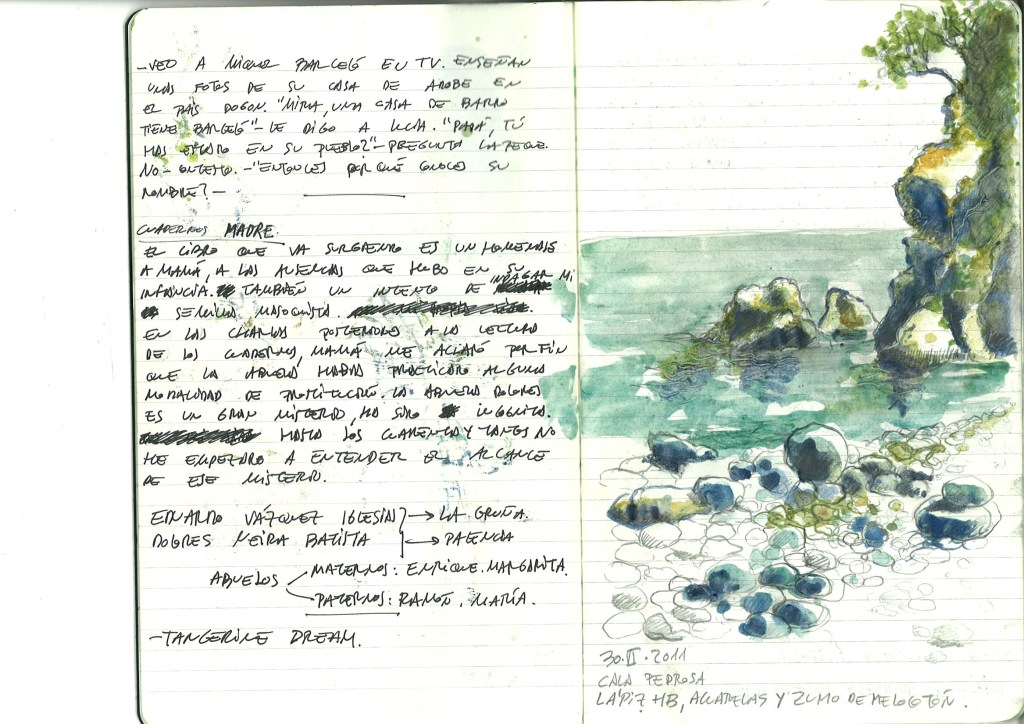 -VEO A MIQUEL BARCELÓ EN TV. ENSEÑAN
UNAS FOTOS DE SU CASA DE ADOBE EN
EL PAÍS DOGON. "MIRA, UNA CASA DE BARRO
TIENE BARCELÓ"- LE DIGO A LUCÍA. "PAPÁ, TÚ
HAS ESTADO EN SU PUEBLO?"- PREGUNTA LA PEQUE.
NO - CONTESTO. -"ENTONCES POR QUÉ CONOCES SU
NOMBRE?-
CUADERNOS MADRE.
EL LIBRO QUE VA SURGIENDO ES UN HOMENAJE
A MAMÁ, A LAS AUSENCIAS QUE HUBO EN SU
INFANCIA. TAMBIÉN UN INTENTO DE INDAGAR MI
SEMILLA MASOQUISTA.
EN LAS CHARLAS POSTERIORES A LA LECTURA
DE LOS CUADERNOS, MAMÁ ME ACLARÓ POR FIN
QUE LA ABUELA HABÍA PRACTICADO ALGUNA
MODALIDAD DE PROSTITUCIÓN. LA ABUELA DOLORES
ES UN GRAN MISTERIO, HA SIDO INCÓGNITA.
HASTA LOS CUARENTA Y TANTOS NO
HE EMPEZADO A ENTENDER EL ALCANCE
DE ESE MISTERIO.
EDUARDO VÁZQUEZ IGLESIAS → LA CORUÑA.
DOLORES NEIRA BATISTA → PALENCIA
ABUELOS
MATERNOS: ENRIQUE. MARGARITA.
PATERNOS: RAMÓN. MARÍA.
-TANGERINE DREAM.
30.VI.2011
CALA PEDROSA
LÁPIZ HB, ACUARELAS Y ZUMO DE MELOCOTÓN.